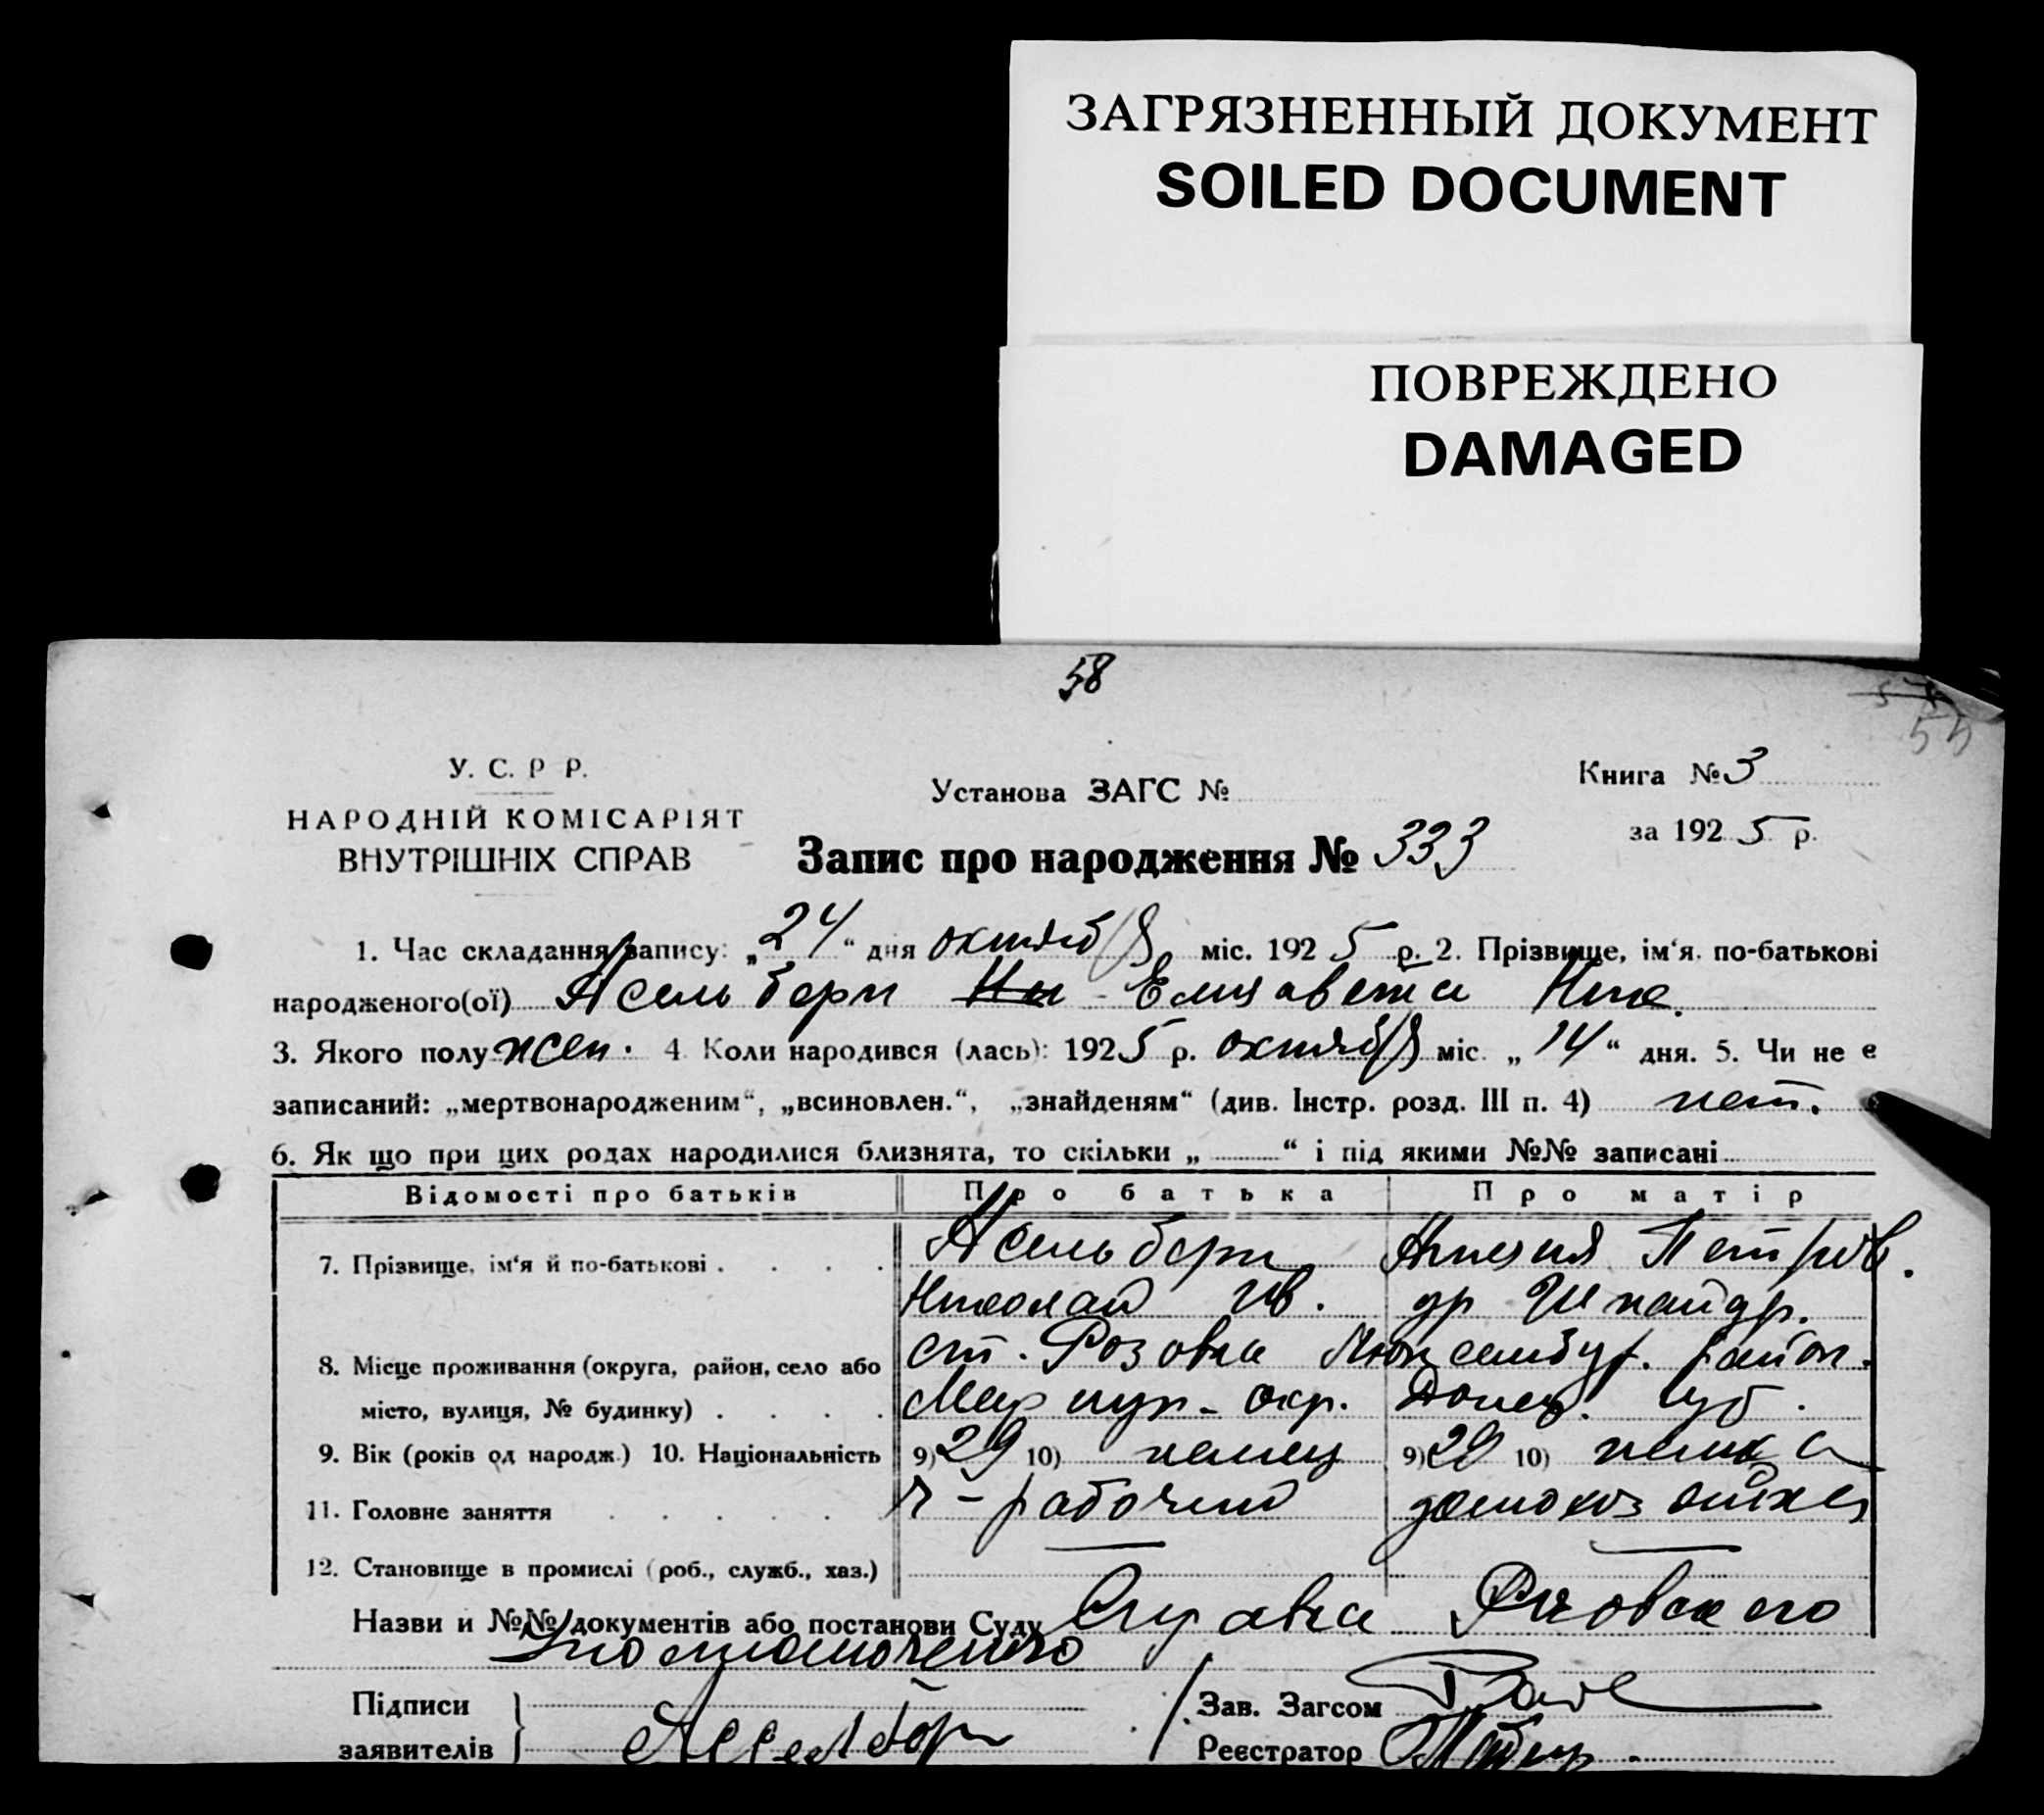 ЗАГРЯЗНЕННЫЙ ДОКУМЕНТ
SOILED DOCUMENT
ПОВРЕЖДЕНО
DAMAGED
58
55
У. С. Р Р.
НАРОДНІЙ КОМІСАРІЯТ
ВНУТРІШНІХ СПРАВ
Установа ЗАГС №
Книга № 3
за 192 5 р.
Запис про народження № 333
1. Час складання запису: „ 24 “ дня октября міс. 192 5 р. 2. Прізвище, ім‘я, по-батькові
народженого(ої) Асельборн Елизавета Ник.
3. Якого полу жен. 4 Коли народився (лась): 192 5 р. октября міс. „ 14 “ дня. 5. Чи не є
записаний: „мертвонародженим“, „всиновлен.“, „знайденям“ (див. Інстр. розд. III п. 4) нет.
6. Як що при цих родах народилися близнята, то скільки „ “ і під якими №№ записані
Відомості про батьків Про батька Про матір
7. Прізвище, ім‘я й по-батькові . . . . Асельборн Петров.
Николай Ив. др Шнайдр.
8. Місце проживання (округа, район, село або ст. Розовка Люксембур. район.
місто, вулиця, № будинку) . . . . Мариуп- окр. Донец. губ.
9. Вік (років од народж.) 10. Національність 9) 29 10) немец 9) 29 10) немка
11. Головне заняття . . . . . . ч-рабочий домохозяйка
12. Становище в промислі (роб., служб., хаз.)
Назви и №№ документів або постанови Суду Справка Розовского
Підписи
заявителів
Зав. Загсом
Реєстратор